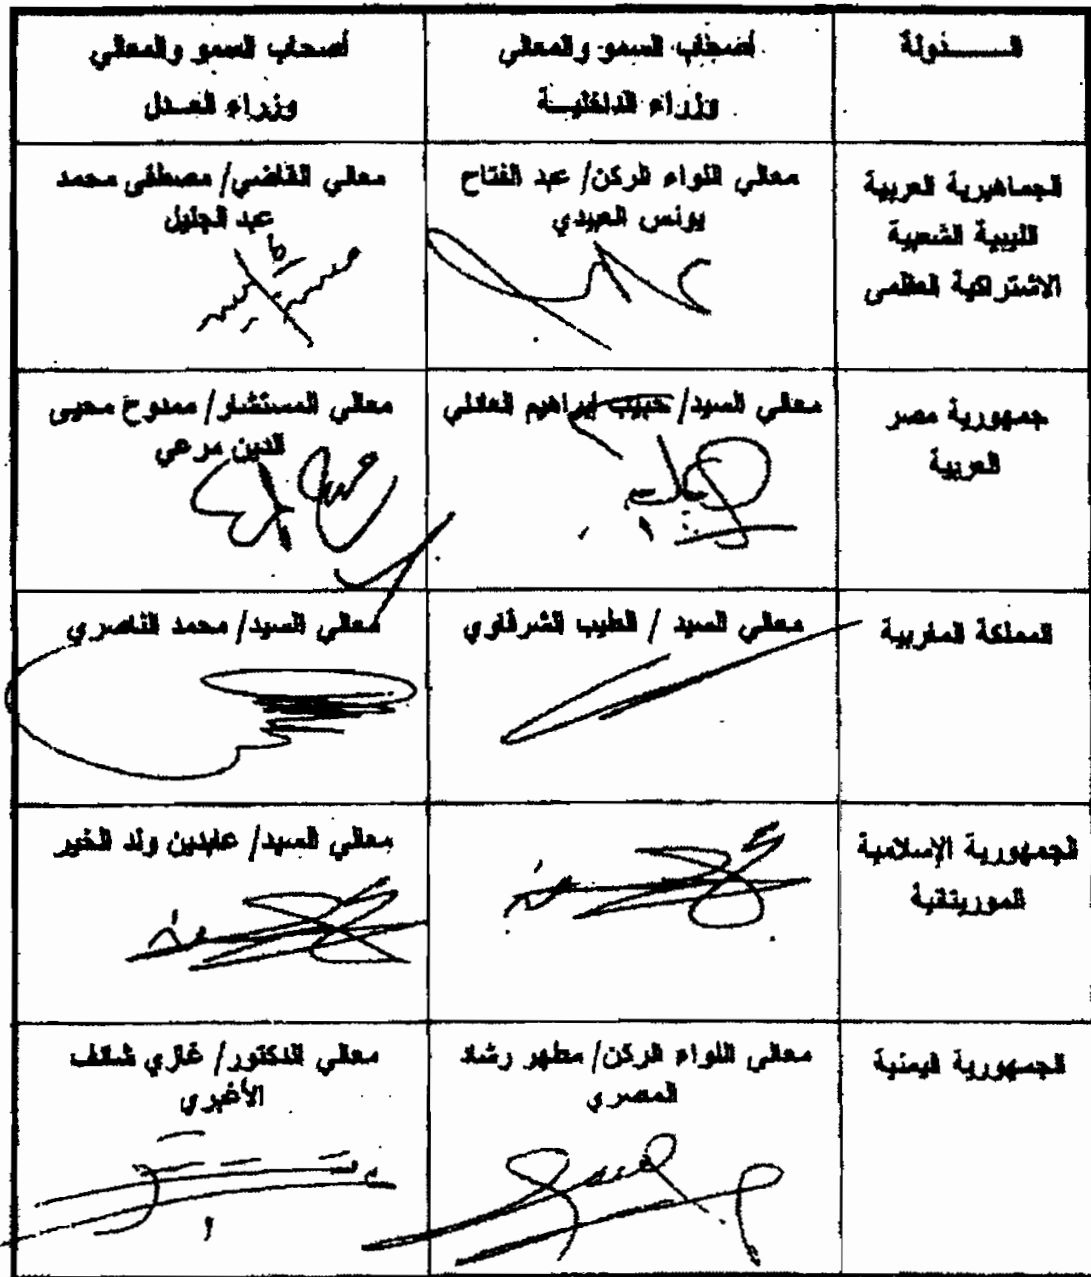 الـــــدولة
أصحاب السمو والمعالي
وزراء الداخليـــة
أصحاب السمو والمعالي
وزراء العـــدل
الجماهيرية العربية
الليبية الشعبية
الاشتراكية العظمى
معالي اللواء الركن/ عبد الفتاح
يونس العبيدي
معالي القاضي/ مصطفى محمد
عبد الجليل
جمهورية مصر
العربية
معالي السيد/ حبيب إبراهيم العادلي
معالي المستشار/ ممدوح محيى
الدين مرعي
المملكة المغربية
معالي السيد / الطيب الشرقاوي
معالي السيد/ محمد الناصري
الجمهورية الإسلامية
الموريتانية
معالي السيد/ عابدين ولد الخير
الجمهورية اليمنية
معالي اللواء الركن/ مطهر رشاد
المصري
معالي الدكتور/ غازي شائف
الأغبري